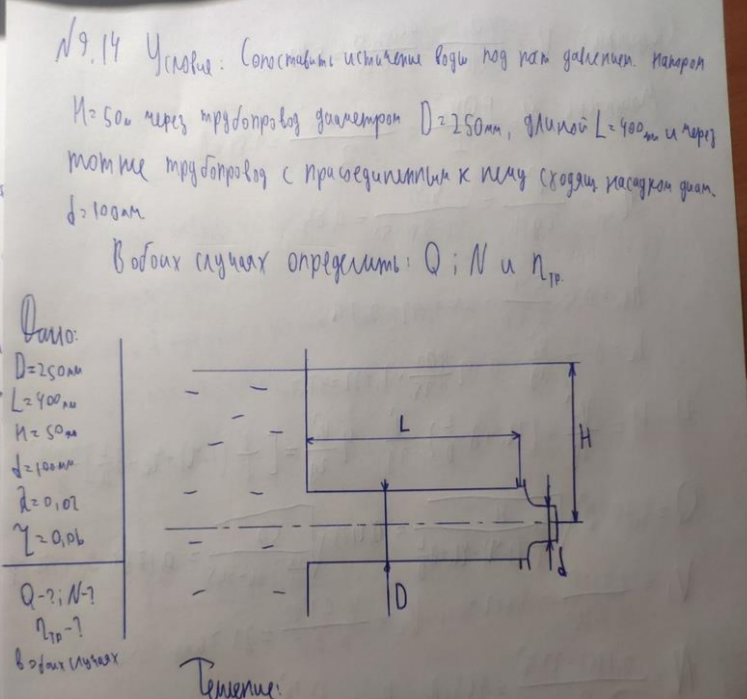 №9.14 Условие: Сопоставить истечение воды под пост давлением напором
H=50м через трубопровод диаметром D=250мм, длиной L=400м и через
тот же трубопровод с присоединенным к нему сходящ насадком диам.
d=100мм
В обоих случаях определить: Q; N и η тр.
Дано:
D=250мм
L=400м
H=50м
d=100мм
λ=0,02
ζ=0,06
Q-?; N-?
η тр-?
в обоих случаях
L
H
D
d
Решение: